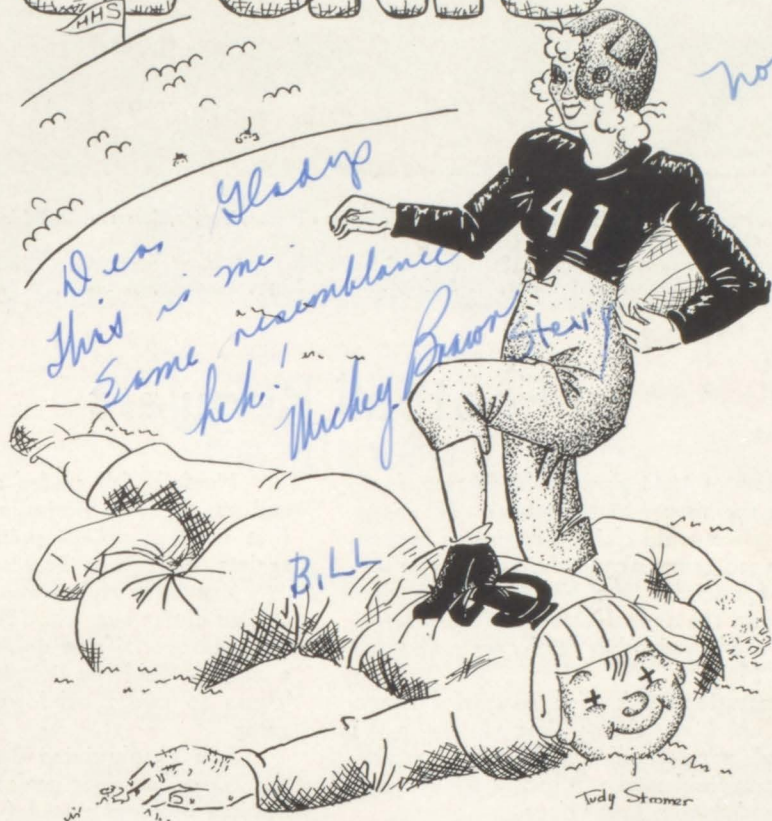 HHS
no
41
Dear Gladys
This is me.
Some resemblance
heh!
Mickey Brown
BILL
Judy Stromer